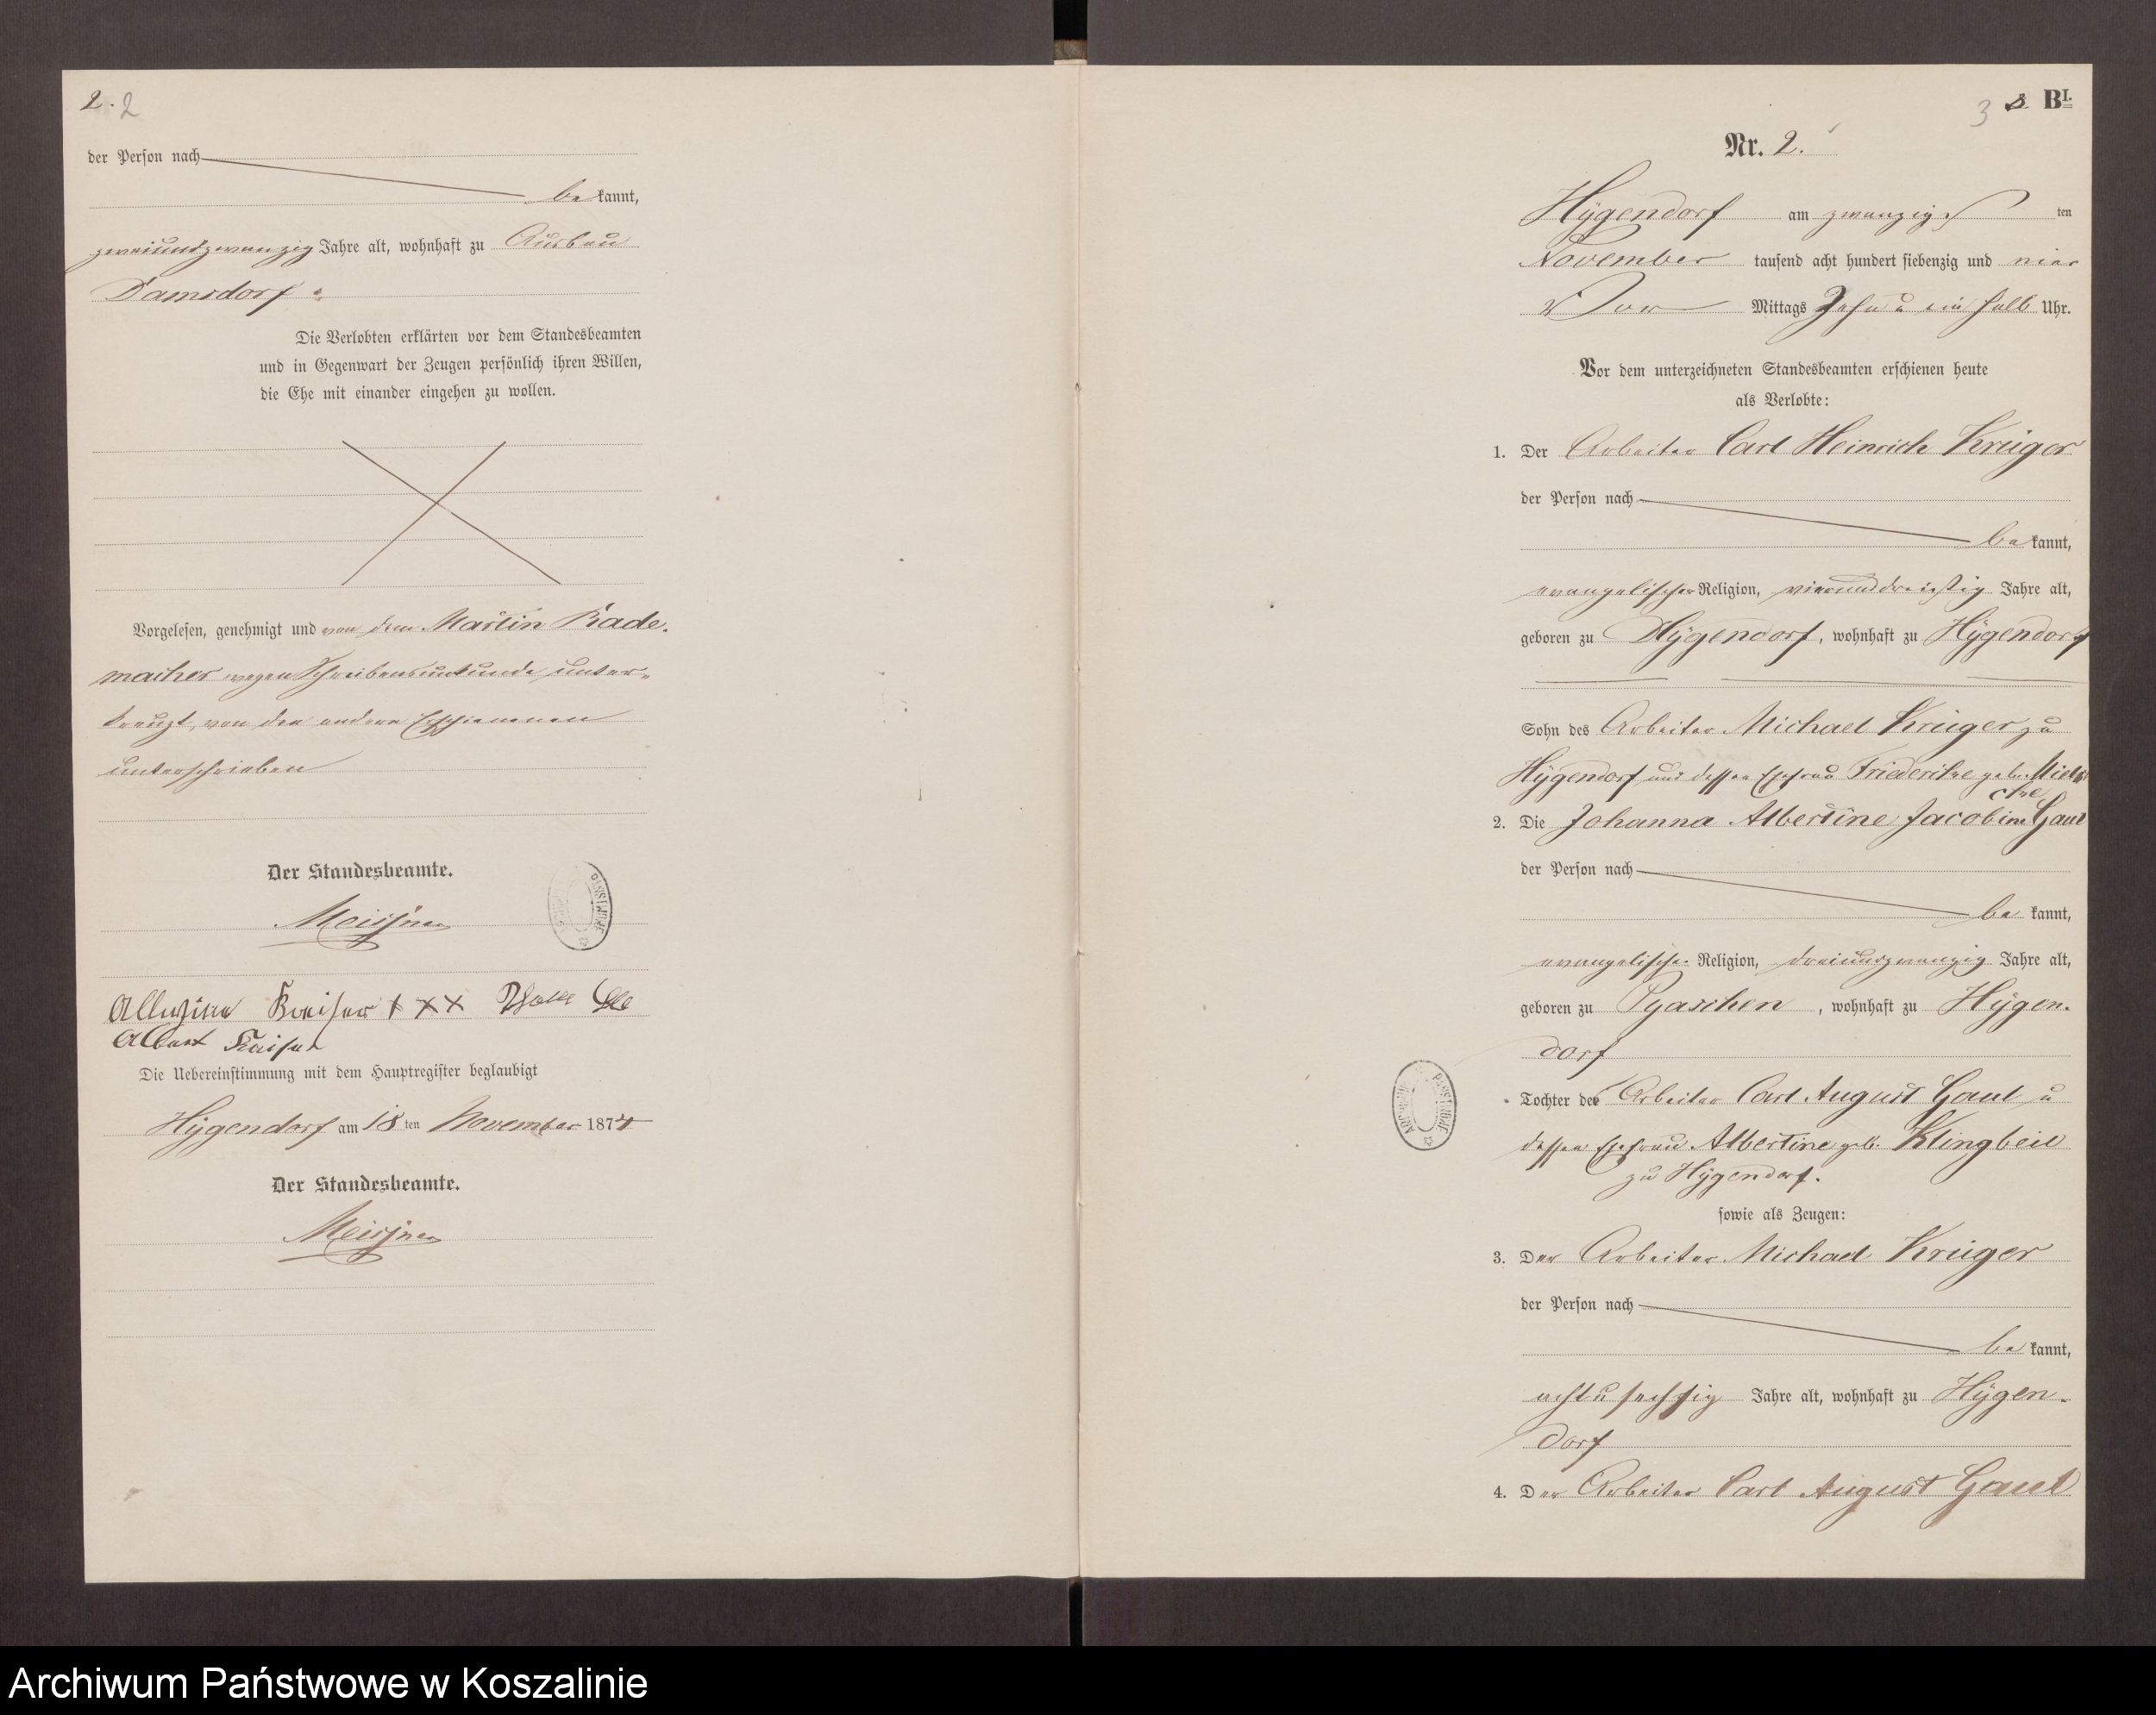 2. 2
der Person nach
be kannt,
zweiundzwanzig Jahre alt, wohnhaft zu Ausbau
Damsdorf.
Die Verlobten erklärten vor dem Standesbeamten
und in Gegenwart der Zeugen persönlich ihren Willen,
die Ehe mit einander eingehen zu wollen.
Vorgelesen, genehmigt und von dem Martin Rade-
macher wegen Schreibensunkunde unter-
kreuzt, von den andern Erschienenen
unterschrieben
Der Standesbeamte.
Meissner
Albertine Kaiser + X X
Albert Kaiser
Die Uebereinstimmung mit dem Hauptregister beglaubigt
Hÿgendorf am 18 ten November 1874
Der Standesbeamte.
Meissner
3 BI.
Nr. 2.
Hÿgendorf am zwanzigs ten
November tausend acht hundert siebenzig und vier
Vor Mittags Zehn u ein halb Uhr.
Vor dem unterzeichneten Standesbeamten erschienen heute
als Verlobte:
1. Der Arbeiter Carl Heinrich Krüger
der Person nach
be kannt,
evangelischer Religion, vierunddreißig Jahre alt,
geboren zu Hÿgendorf, wohnhaft zu Hÿgendorf
Sohn des Arbeiter Michael Krüger zu
Hÿgendorf und dessen Ehefrau Friederike geb. Miels
cke
2. Die Johanna Albertine Jacobine Gaul
der Person nach
be kannt,
evangelischer Religion, dreiundzwanzig Jahre alt,
geboren zu Pyaschen, wohnhaft zu Hÿgen-
dorf
Tochter des Arbeiter Carl August Gaul u
dessen Ehefrau Albertine geb. Klingbeil
zu Hÿgendorf.
sowie als Zeugen:
3. Der Arbeiter Michael Krüger
der Person nach
be kannt,
acht u sechsig Jahre alt, wohnhaft zu Hÿgen-
dorf
4. Der Arbeiter Carl August Gaul
Archiwum Państwowe w Koszalinie